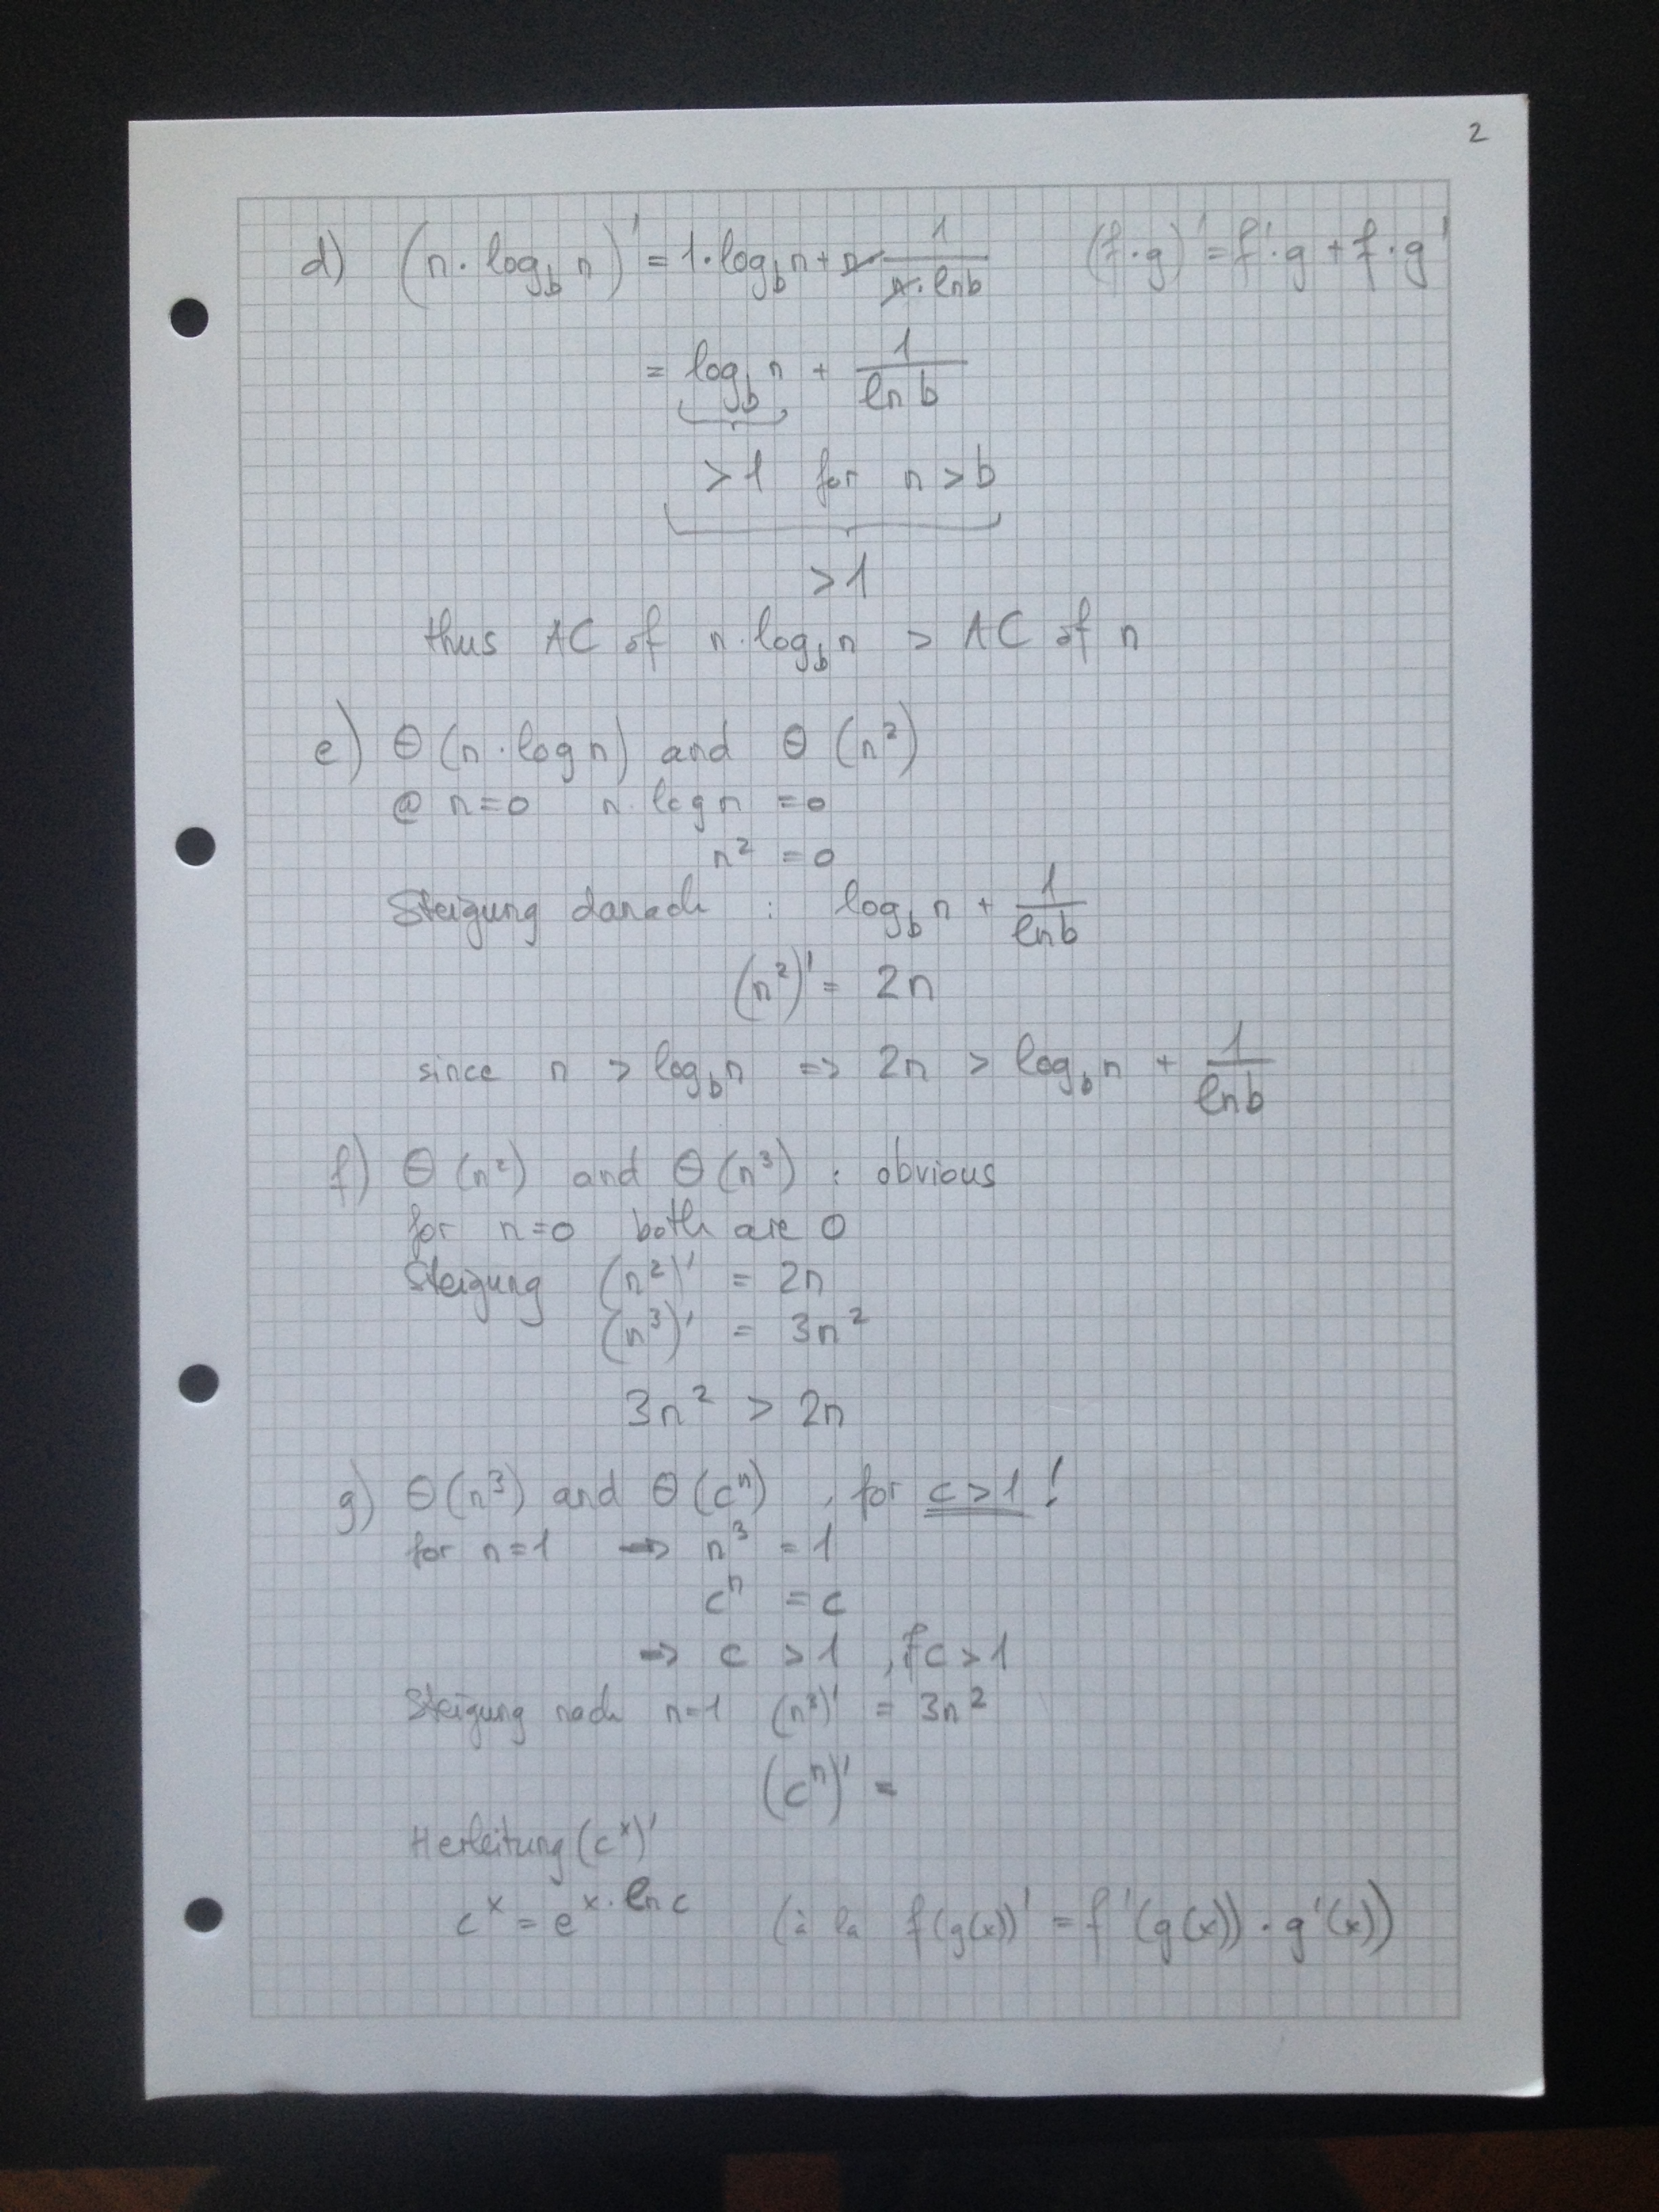 2
d) (n · log_b n)' = 1 · log_b n + n · 1/(n · ln b)    (f · g)' = f' · g + f · g'
= log_b n + 1/(ln b)
> 1 for n > b
> 1
thus AC of n · log_b n > AC of n
e) Θ(n · log n) and Θ(n²)
@ n=0 n · log n = 0
n² = 0
Steigung danach : log_b n + 1/(ln b)
(n²)' = 2n
since n > log_b n => 2n > log_b n + 1/(ln b)
f) Θ(n²) and Θ(n³) : obvious
for n=0 both are 0
Steigung (n²)' = 2n
(n³)' = 3n²
3n² > 2n
g) Θ(n³) and Θ(cⁿ) , for c > 1 !
for n=1 => n³ = 1
cⁿ = c
=> c > 1 , if c > 1
Steigung nach n=1 (n³)' = 3n²
(cⁿ)' =
Herleitung (cˣ)'
cˣ = e^(x · ln c)    (à la f(g(x))' = f'(g(x)) · g'(x))